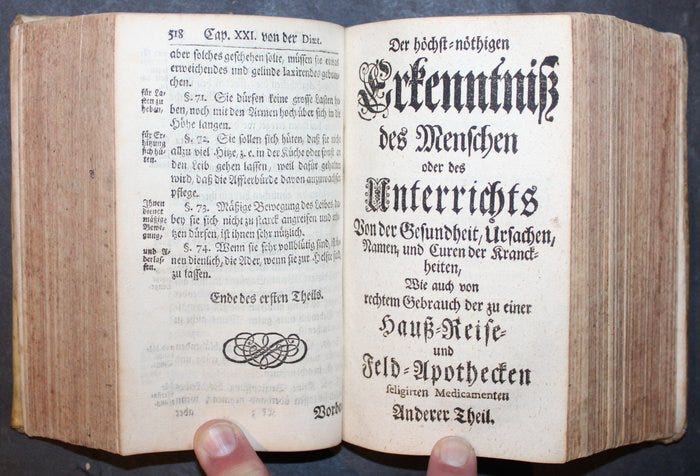 518 Cap. XXI. von der Diæt.
aber solches geschehen solte, müssen sie etwas
erweichendes und gelinde laxirendes gebrau-
chen.
für La-
sten zu
heben,
§. 71. Sie dürfen keine grosse Lasten he-
ben, noch mit den Armen hoch über sich in die
Höhe langen.
für Er-
hitzung
sich hü-
ten.
§. 72. Sie sollen sich hüten, daß sie nicht
allzu viel Hitze, z. e. in der Küche oder sonst an
den Leib gehen lassen, weil dafür gehalten
wird, daß die Affterbürde davon anzuwachsen
pflege.
Ihnen
dienet
mäßige
Bewe-
gung,
§. 73. Mäßige Bewegung des Leibes, da-
bey sie sich nicht zu starck angreifen und erhi-
tzen dürfen, ist ihnen sehr nützlich.
und Ader-
lassen.
§. 74. Wenn sie sehr vollblütig sind, ist ih-
nen dienlich, die Ader, wenn sie zur Helfte sind,
zu lassen.
Ende des ersten Theils.
Der höchst-nöthigen
Erkenntniß
des Menschen
oder des
Unterrichts
Von der Gesundheit, Ursachen,
Namen, und Curen der Kranck-
heiten,
Wie auch von
rechtem Gebrauch der zu einer
Hauß-Reise-
und
Feld-Apothecken
seligirten Medicamenten
Anderer Theil.